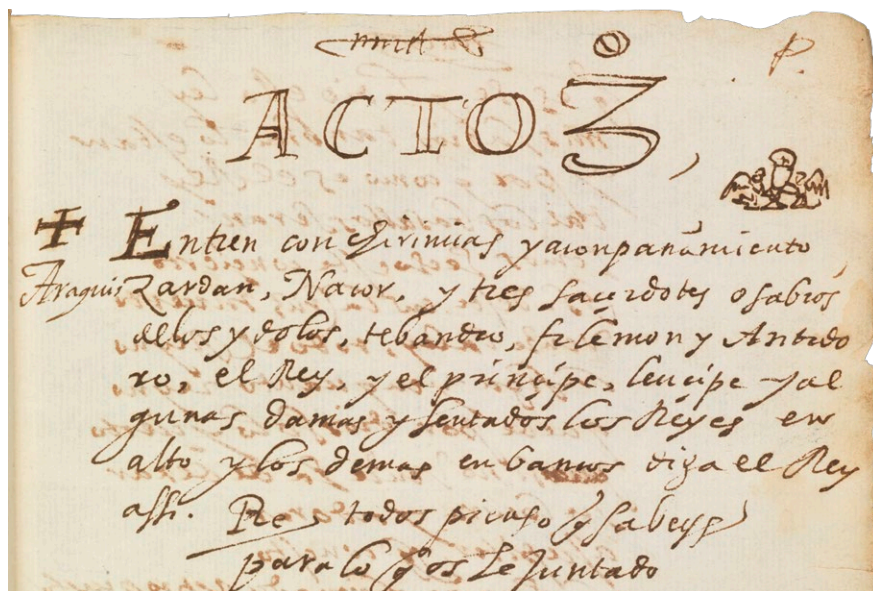 ACTO 3º
P.
Entren con chirimias y aconpañamiento,
Araquis Zardan, Nacor, y tres sacerdotes o sabios
de los ydolos, tebandro, filemon y Antido
ro, el Rey, y el principe, leucipe y al
gunas damas y sentados los Reyes en
alto y los demas en bancos diga el Rey
assi. Re todos pienso q sabeys
para lo q os he juntado